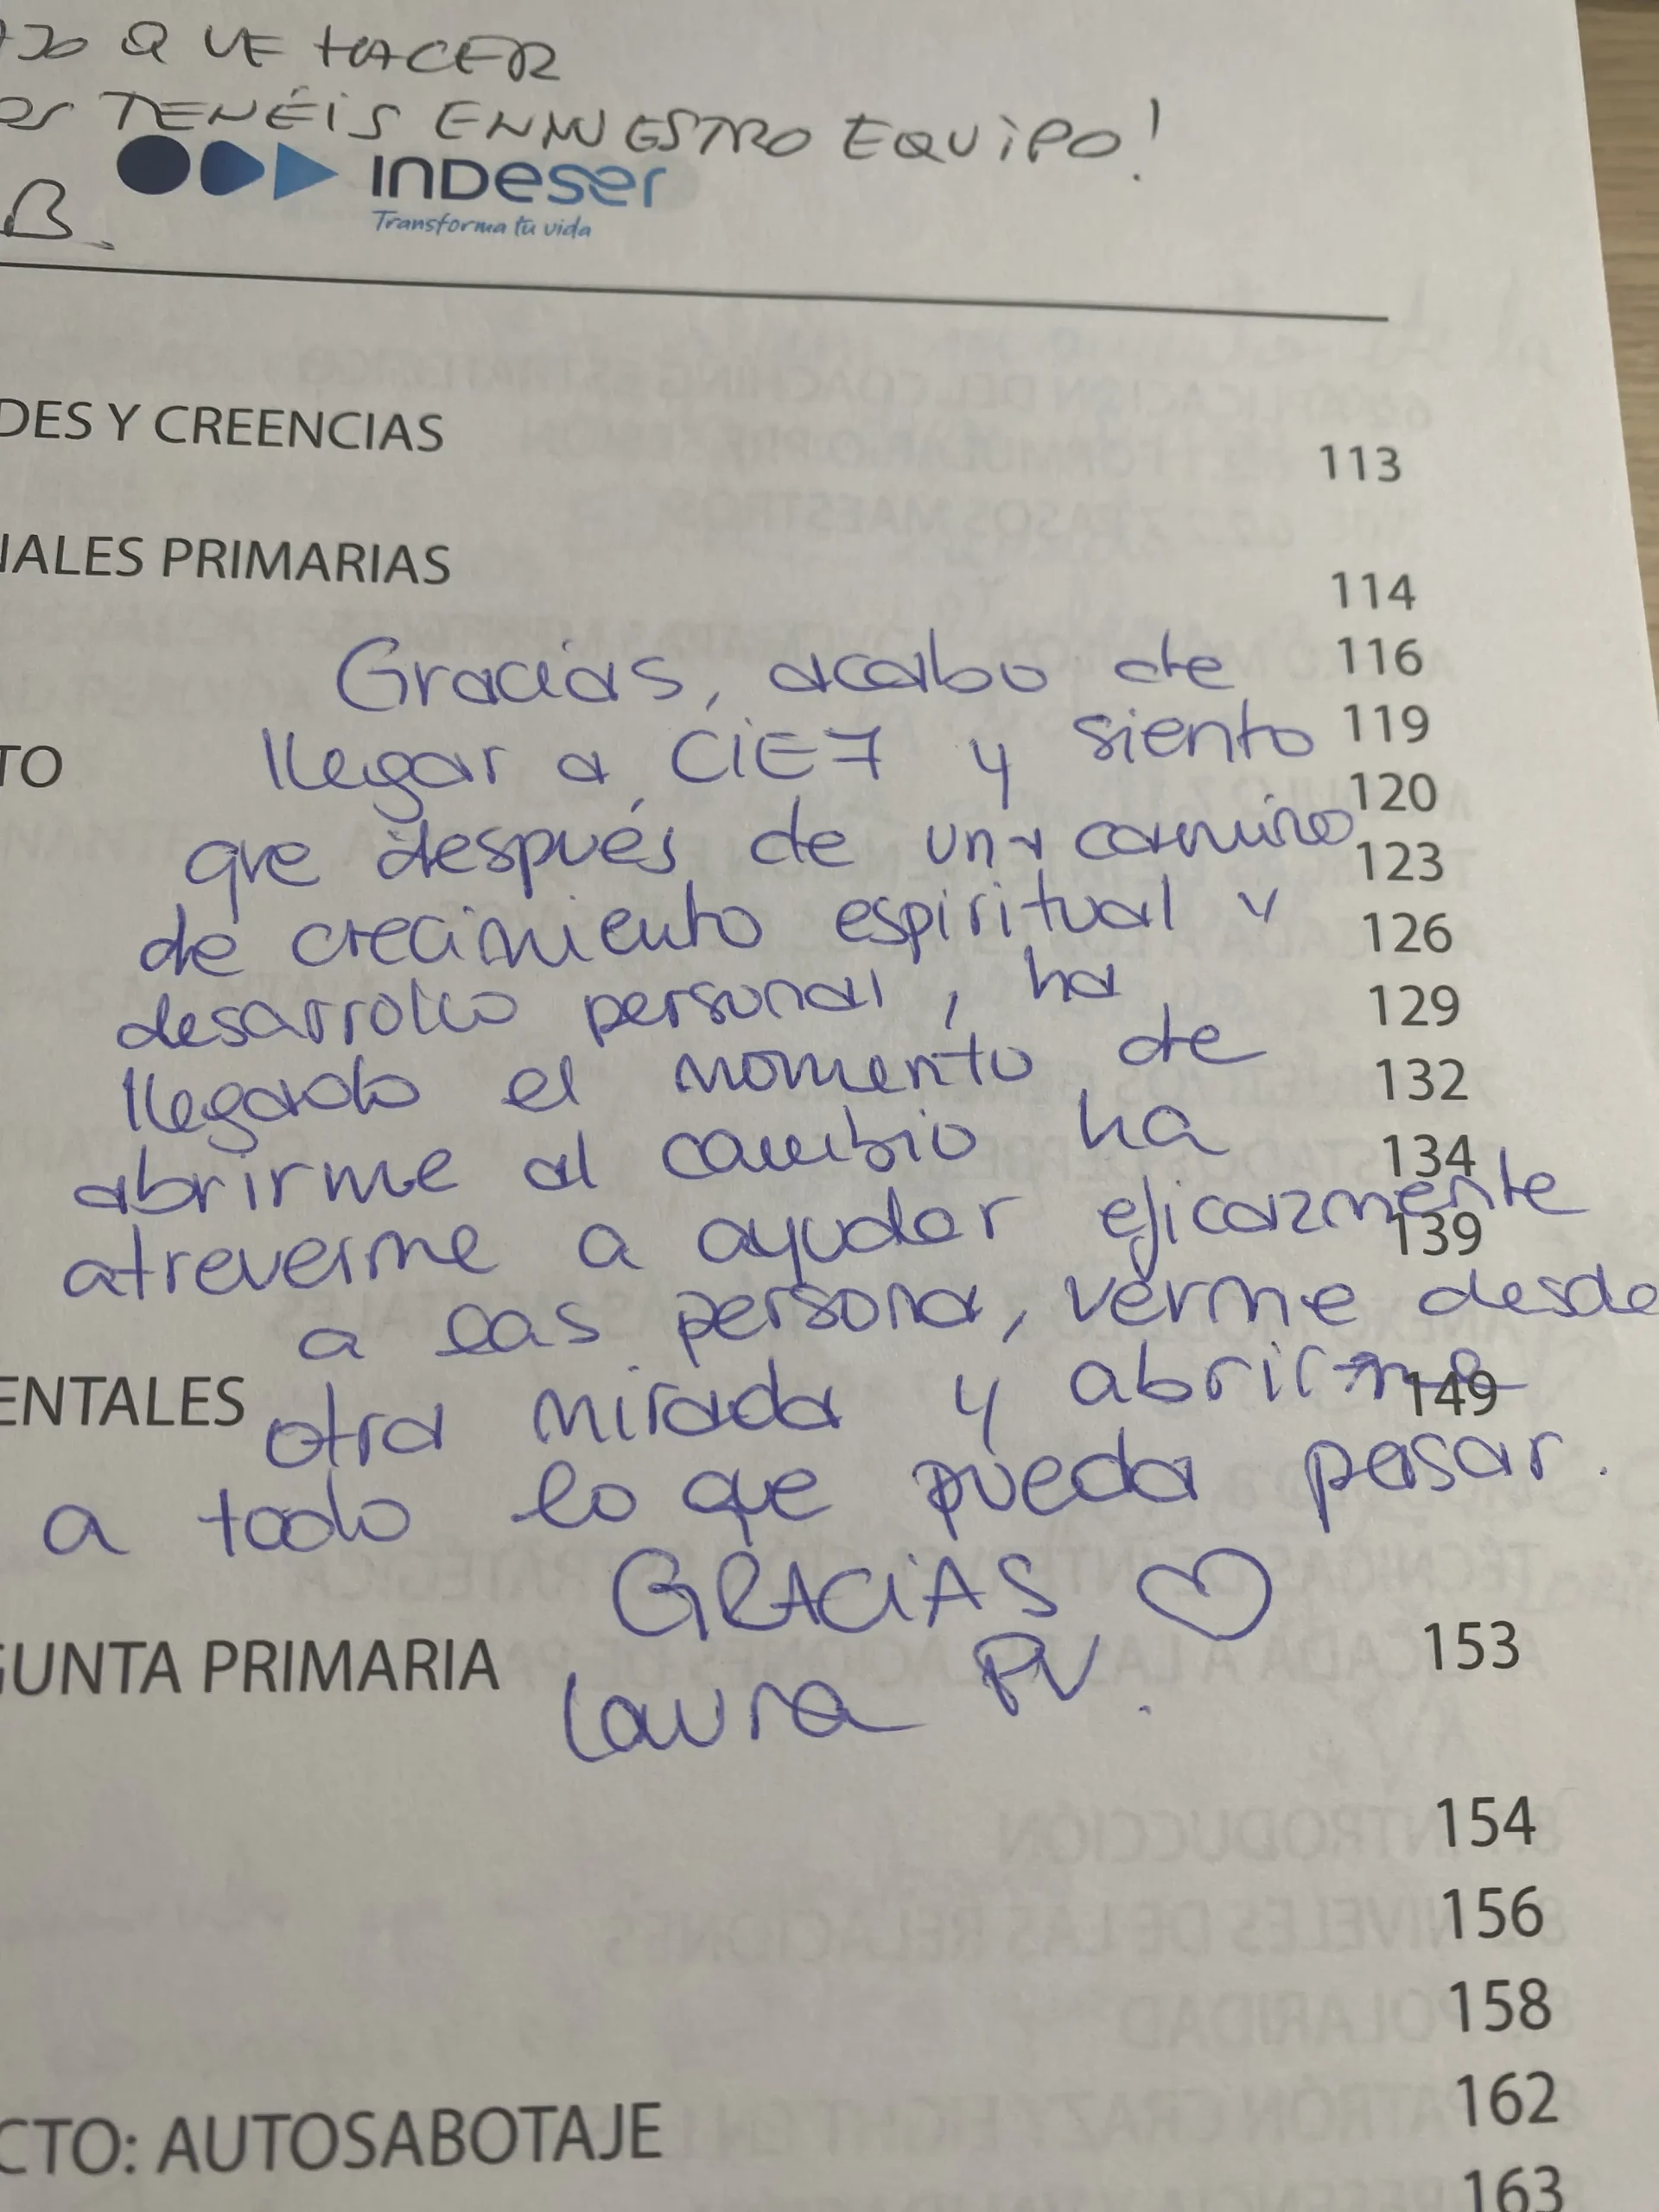 QUE HACER
TENÉIS EN NUESTRO EQUIPO!
B.
INDESER
Transforma tu vida
DES Y CREENCIAS 113
IALES PRIMARIAS 114
Gracias, acabo de 116
llegar a CiE7 y siento 119
TO 120
que después de una camino 123
de crecimiento espiritual y 126
desarrollo personal, ha 129
llegado el momento de 132
abrirme al cambio ha 134
atreverme a ayudar eficazmente 139
a las persona, verme desde
ENTALES otra mirada y abrirme 149
a todo lo que pueda pasar.
GRACIAS
GUNTA PRIMARIA 153
Laura PV.
154
156
158
CTO: AUTOSABOTAJE 162
163